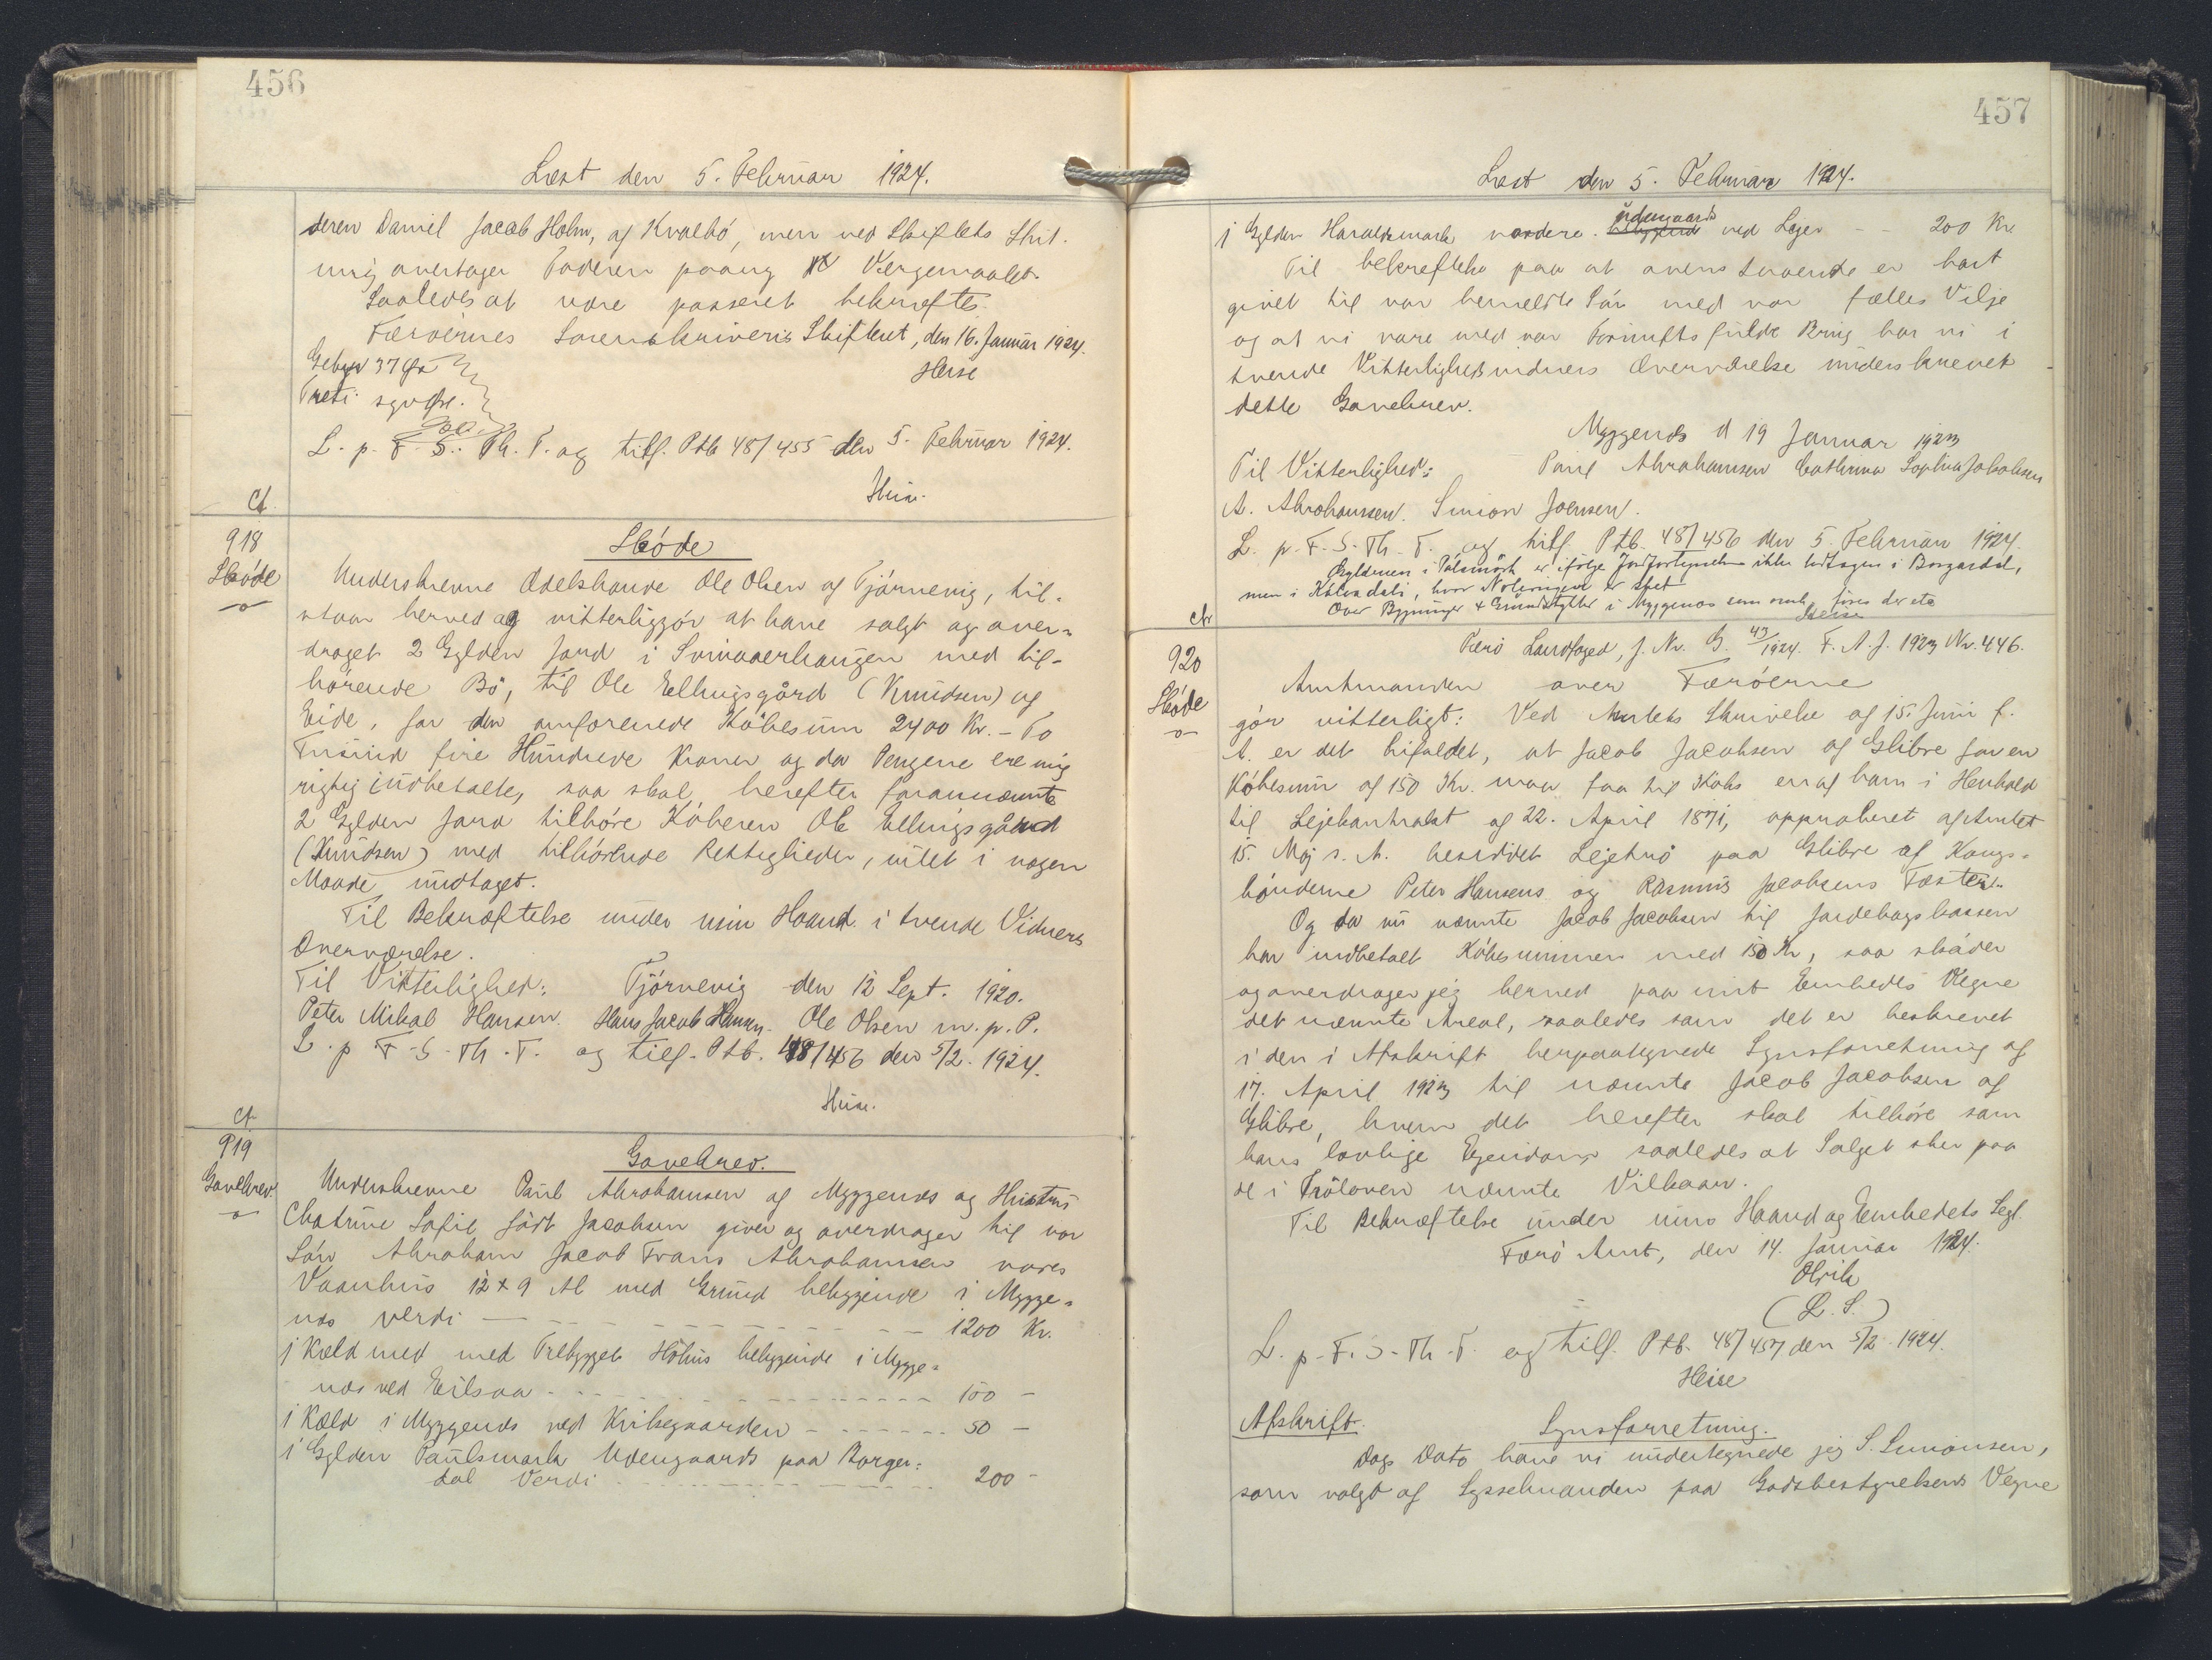 456
Læst den 5. Februar 1924.
deren Daniel Jacob Holm, af Kvalbø, men ved Skiftets Slut-
ning overtager Faderen paany Værgemaalet.
Saaledes at være passeret bekræftes.
Færøernes Sorenskriveris Skifteret, den 16. Januar 1924.
Gebyr 37 Øre
Heise
Treti syv Øre.
L. p. F. S. Th. T. og tilf. Ptb 48/455 den 5. Februar 1924.
Heise.
Ct.
918
Skóde
Skóde
Underskrevne Odelsbonde Ole Olsen af Tjørnevig, til-
staar herved og vitterliggør at have solgt og over-
draget 2 Gylden Jord i Svinaaerhaugen med til-
hørende Bø, til Ole Ellingsgård (Knudsen) af
Eide, for den omforenede Købesum 2400 Kr. - To
Tusind fire Hundrede Kroner og da Pengene ere mig
rigtig indbetalte, saa skal herefter forannævnte
2 Gylden Jord tilhøre Køberen Ole Ellingsgård
(Knudsen) med tilhørende Rettiglieder, intet i nogen
Maade undtaget.
Til Bekræftelse under min Haand i tvende Vidners
Overværelse.
Til Vitterlighed: Tjørnevig den 12 Sept. 1920.
Peter Mikal Hansen. Hans Jacob Hansen. Ole Olsen m. p. P.
L. p. F. S. Th. T. og tilf. Ptb. 48/456 den 5/2. 1924.
Heise.
Ct.
919
Gavebrev
Gavebrev.
Underskrevne Paul Abrahamsen af Myggenæs og Hustru
Chatrine Sofie født Jacobsen giver og overdrager til vor
Søn Abraham Jacob Frans Abrahamsen vores
Vaanhus 12 x 9 Al med Grund beliggende i Mygge-
næs verdi 1200 Kr.
1 Kæld med med Trebygget Høhus beliggende i Mygge-
næs ved Eilsaa 100 -
1 Kæld i Myggenæs ved Kirkegaarden 50 -
1 Gylden Paulsmark Udengaards paa Borger-
dal Verdi 200 -
457
Læst den 5. Februar 1924.
1 Gylden Haraldsmark vordere. udengaards ved Lejer 200 Kr.
Til bekreftelse paa at ovenstaaende er bort
givet til vor bemeldte Søn med vor fælles Vilje
og at vi vare med vor Fornufts fulde Brug har vi i
tvende Vitterlighedsvidners Overværelse underskrevet
dette Gavebrev.
Myggenæs d 19 Januar 1923
Til Vitterlighed: Paul Abrahamsen Cathrina Sophia Jakobsen
A. Abrahamsen. Simion Joensen.
L. p. F. S. Th. T. og tilf. Ptb. 48/456 den 5. Februar 1924.
Gyldenen i Pálsmørk er ifølge Jordfortegnelsen ikke udtagen i Borgardal,
men i Kálvadali, hvor Noteringen er sket
Over Bygninger & Grundstykker i Myggenæs som omh. føres der ete
Heise
Ct
920
Skóde
Færø Landfoged, J. Nr. G. 43/1924. F. A. J. 1923 Nr. 446.
Amtmanden over Færøerne
gør vitterligt: Ved Amtets Skrivelse af 15. Juni f.
A. er det bifaldet, at Jacob Jacobsen af Glibre for en
Købesum af 150 Kr. maa faa til Købs en af ham i Henhold
til Lejekontrakt af 22. April 1871, approberet af Amtet
15. Maj s. A. besiddet Lejetrø paa Glibre af Kongs-
bønderne Peter Hansens og Rasmus Jacobsens Fæster.
Og da nu nævnte Jacob Jacobsen til Jordebogskassen
har indbetalt Købesummen med 150 Kr, saa skøder
og overdrager jeg herved paa mit Embedes Vegne
det nævnte Areal, saaledes som det er beskrevet
i den i Afskrift herpaategnede Synsforretning af
17. April 1923 til nævnte Jacob Jacobsen af
Glibre, hvem det herefter skal tilhøre som
hans lovlige Ejendom, saaledes at Salget sker paa
de i Trøloven nævnte Vilkaar.
Til Bekræftelse under min Haand og Embedets Segl.
Færø Amt, den 14. Januar 1924.
Olrik
(L. S.)
L. p. F. S. Th. T. og tilf. Ptb. 48/457 den 5/2 1924.
Heise
Afskrift. Synsforretning.
Dags Dato have vi undertegnede jeg S. Simonsen,
som valgt af Sysselmanden paa Godsbestyrelsens Vegne